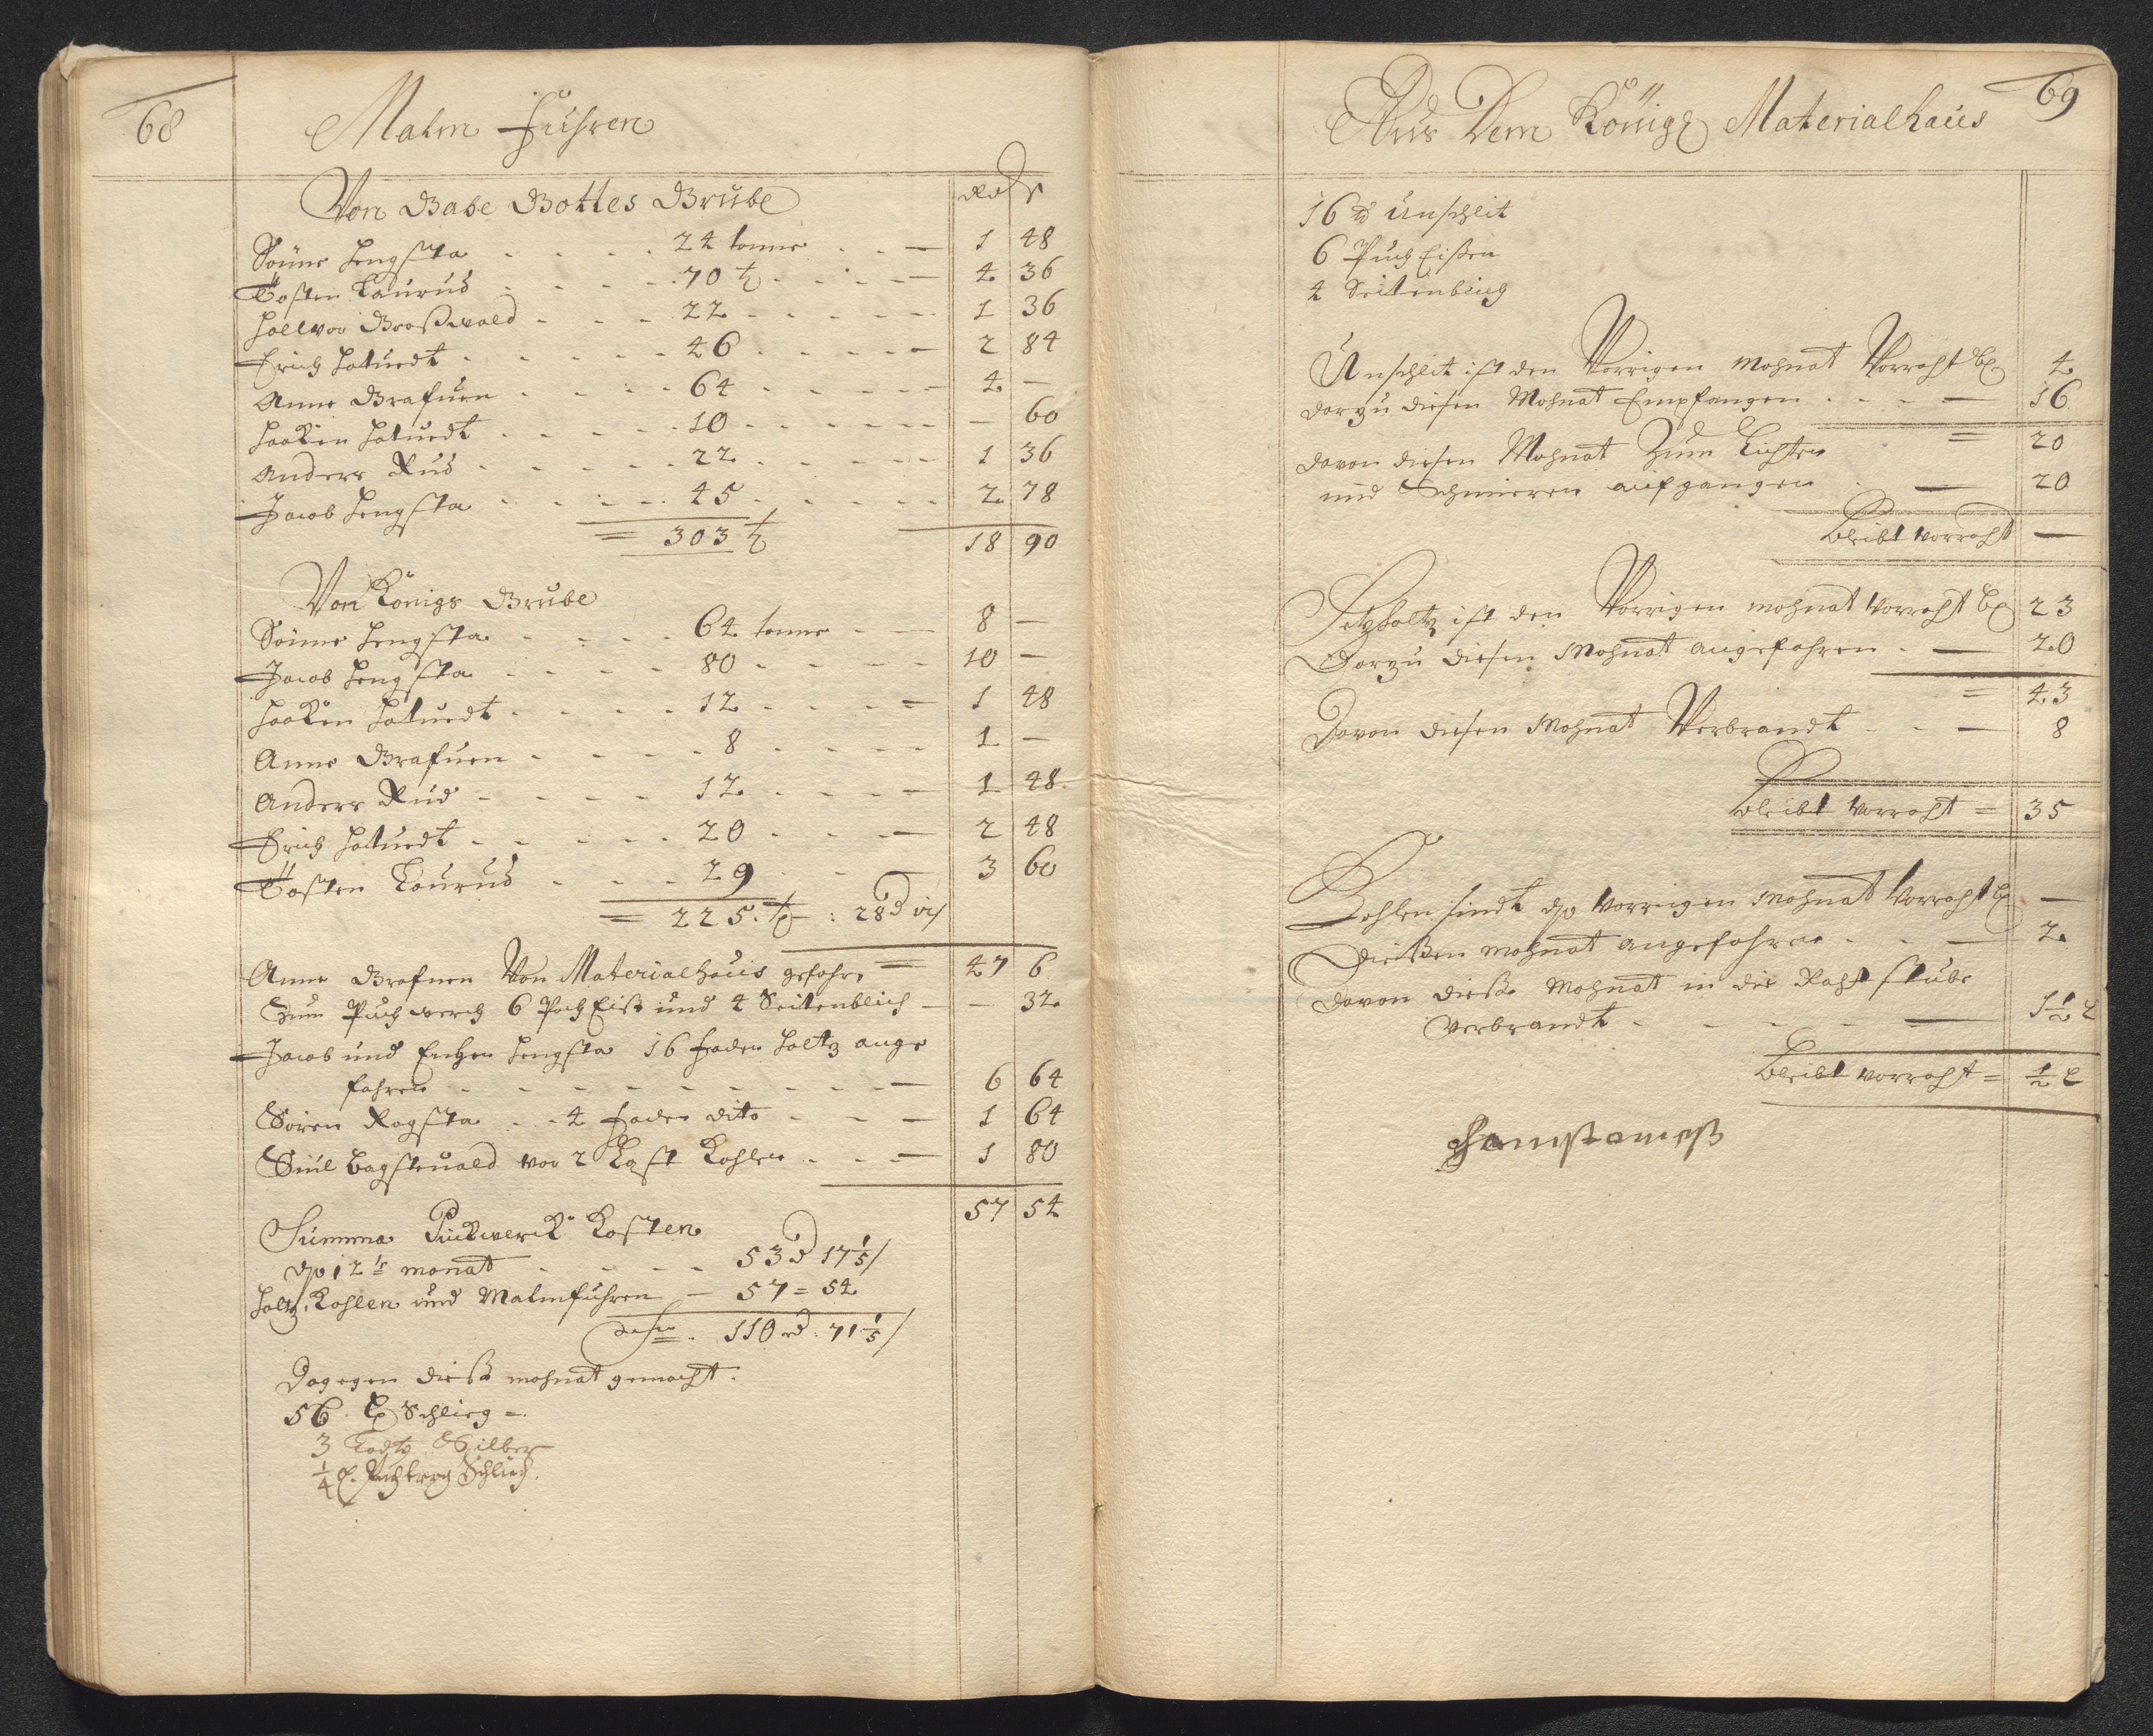 68
Malm Fuhren
Von Gabe Gottes Grube
Rd ß
Söune Hengsta - - - 24 tonne - - 1 48
Tosten Laurud - - - 70 ½ - - - 4 36
Hallvor Großwald - - - 22 - - - 1 36
Erich Hattuedt - - - 46 - - - 2 84
Anne Grafuen - - - 64 - - - 4 -
Haaken Hattuedt - - - 10 - - - - 60
Anders Rud - - - 22 - - - 1 36
Jacob Hengsta - - - 45 - - - 2 78
= 303 ½ 18 90
Von Königs Grube
Söune Hengsta - - - 64 tonne - - 8 -
Jacob Hengsta - - - 80 - - - 10 -
Haaken Hattuedt - - - 12 - - - 1 48
Anne Grafuen - - - 8 - - - 1 -
Anders Rud - - - 12 - - - 1 48
Erich Hattuedt - - - 20 - - - 2 48
Tosten Laurud - - - 29 - - - 3 60
= 225. : 28
Anne Grafuen Von Materialhaus gefahr = 47 6
Zum Puchwerch 6 Poch Eiß und 4 Seitenblich - - 32
Jacob und Hengsta 16 Faden Holtz ange
fahren - - - - 6 64
Sören Rogsta - - 4 Faden dito - - - 1 64
vor 2 Last Kohlen - - - 1 80
57 54
Summa Puckwerck Kosten
12 monat - - - 53 17⅕
Holtz, Kohlen und Malmfuhren - 57 = 54
110 rd. 71⅕
Dagegen dieß mohnat gemacht:
56 Schlieg =
3 Lodtg Silber
¼ Schliech.
69
Aus Dem Königl Materialhaus
16 ℔ Unschlit
6 Puch Eißen
4 Seitenblich
Unschlit ist den Vorrigen Mohnat Vorraht 4
darzu diesen Mohnat Empfangen - - - 16
= 20
davon diesen Mohnat Zum Lichten
und Schmieren aufgangen - 20
bleibt vorraht -
Setzholtz ist den Vorrigen mohnat Vorraht 23
Darzu diesen Mohnat angefahren - 20
= 43
Davon diesen Mohnat Verbrandt - - - 8
bleibt Vorraht = 35
Kohlen sindt vorrigen Mohnat Vorraht -
Dießen mohnat angefahren - - - 2
davon dieße Mohnat in die Raht stube
verbrandt - - - 1½ L
bleibt vorraht = ½ L